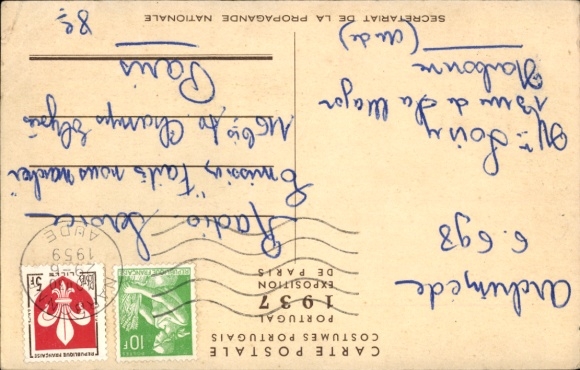 CARTE POSTALE
COSTUMES PORTUGAIS
PORTUGAL
1937
EXPOSITION
DE PARIS
SECRETARIAT DE LA PROPAGANDE NATIONALE
REPUBLIQUE FRANÇAISE
10F
POSTES
REPUBLIQUE FRANÇAISE
5F
NARBONNE
1959
AUDE
Archimède
6.698
Mr
13 rue de La Major
Narbonne
(Aude)
Radio Service
Emission "Faites nous marcher"
116 bis Av Champs Elysées
Paris
8e